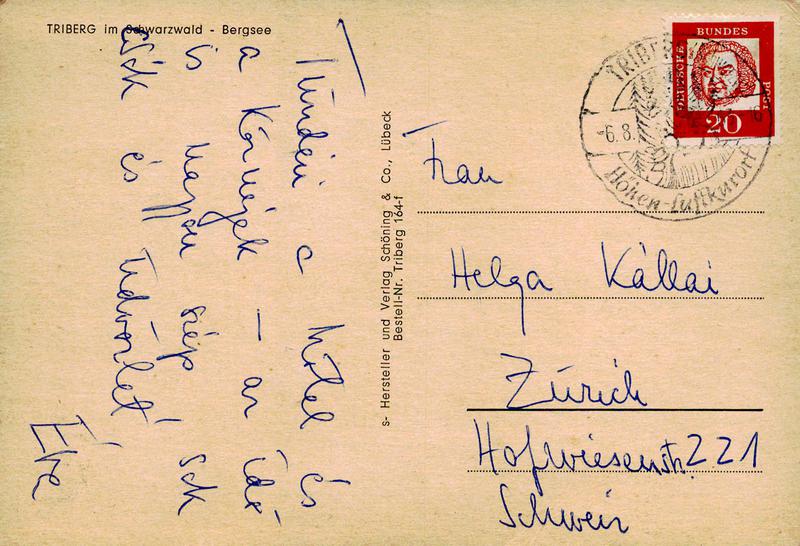 TRIBERG im Schwarzwald - Bergsee
Tündéri a hotel és
a környék – az idő
is nagyon szép. Sok
csók és üdvözlet
Éva
s- Hersteller und Verlag Schöning & Co., Lübeck
Bestell-Nr. Triberg 164-f
DEUTSCHE BUNDESPOST
20
TRIBERG
-6.8.
Höhen-Luftkurort
Frau
Helga Kállai
Zürich
Hofwiesenstr. 221
Schweiz